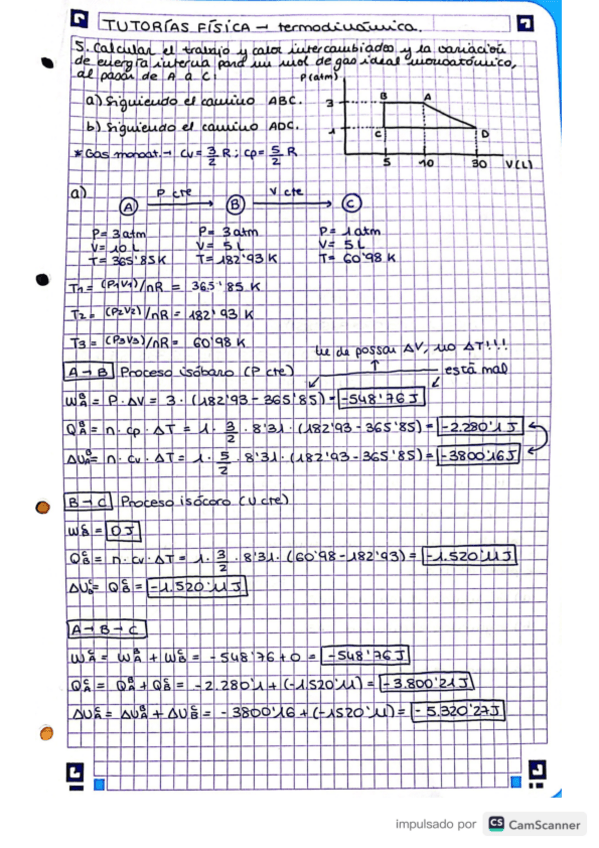 TUTORÍAS FÍSICA → termodinámica.
5. Calcular el trabajo y calor intercambiados y la variación
de energía interna para un mol de gas ideal monoatómico,
al pasar de A a C:
P(atm)
a) Siguiendo el camino ABC.
b) Siguiendo el camino ADC.
* Gas monoat. → Cv = 3/2 R ; Cp = 5/2 R
3
B
A
1
C
D
5
10
30
V(L)
a)
P cte
V cte
A
B
C
P = 3 atm
P = 3 atm
P = 1 atm
V = 10 L
V = 5 L
V = 5 L
T = 365'85 K
T = 182'93 K
T = 60'98 K
T1 = (P1V1)/nR = 365'85 K
T2 = (P2V2)/nR = 182'93 K
T3 = (P3V3)/nR = 60'98 K
he de possar ΔV, no ΔT!!!
A → B Proceso isóbaro (P cte)
está mal
W_A^B = P · ΔV = 3 · (182'93 - 365'85) = -548'76 J
Q_A^B = n · cp · ΔT = 1 · 3/2 · 8'31 · (182'93 - 365'85) = -2.280'1 J
ΔU_A^B = n · cv · ΔT = 1 · 5/2 · 8'31 · (182'93 - 365'85) = -3800'16 J
B → C Proceso isócoro (V cte)
W_B^C = 0 J
Q_B^C = n · cv · ΔT = 1 · 3/2 · 8'31 · (60'98 - 182'93) = -1.520'11 J
ΔU_B^C = Q_B^C = -1.520'11 J
A → B → C
W_A^C = W_A^B + W_B^C = -548'76 + 0 = -548'76 J
Q_A^C = Q_A^B + Q_B^C = -2.280'1 + (-1520'11) = -3.800'21 J
ΔU_A^C = ΔU_A^B + ΔU_B^C = -3800'16 + (-1520'11) = -5.320'27 J
impulsado por CS CamScanner